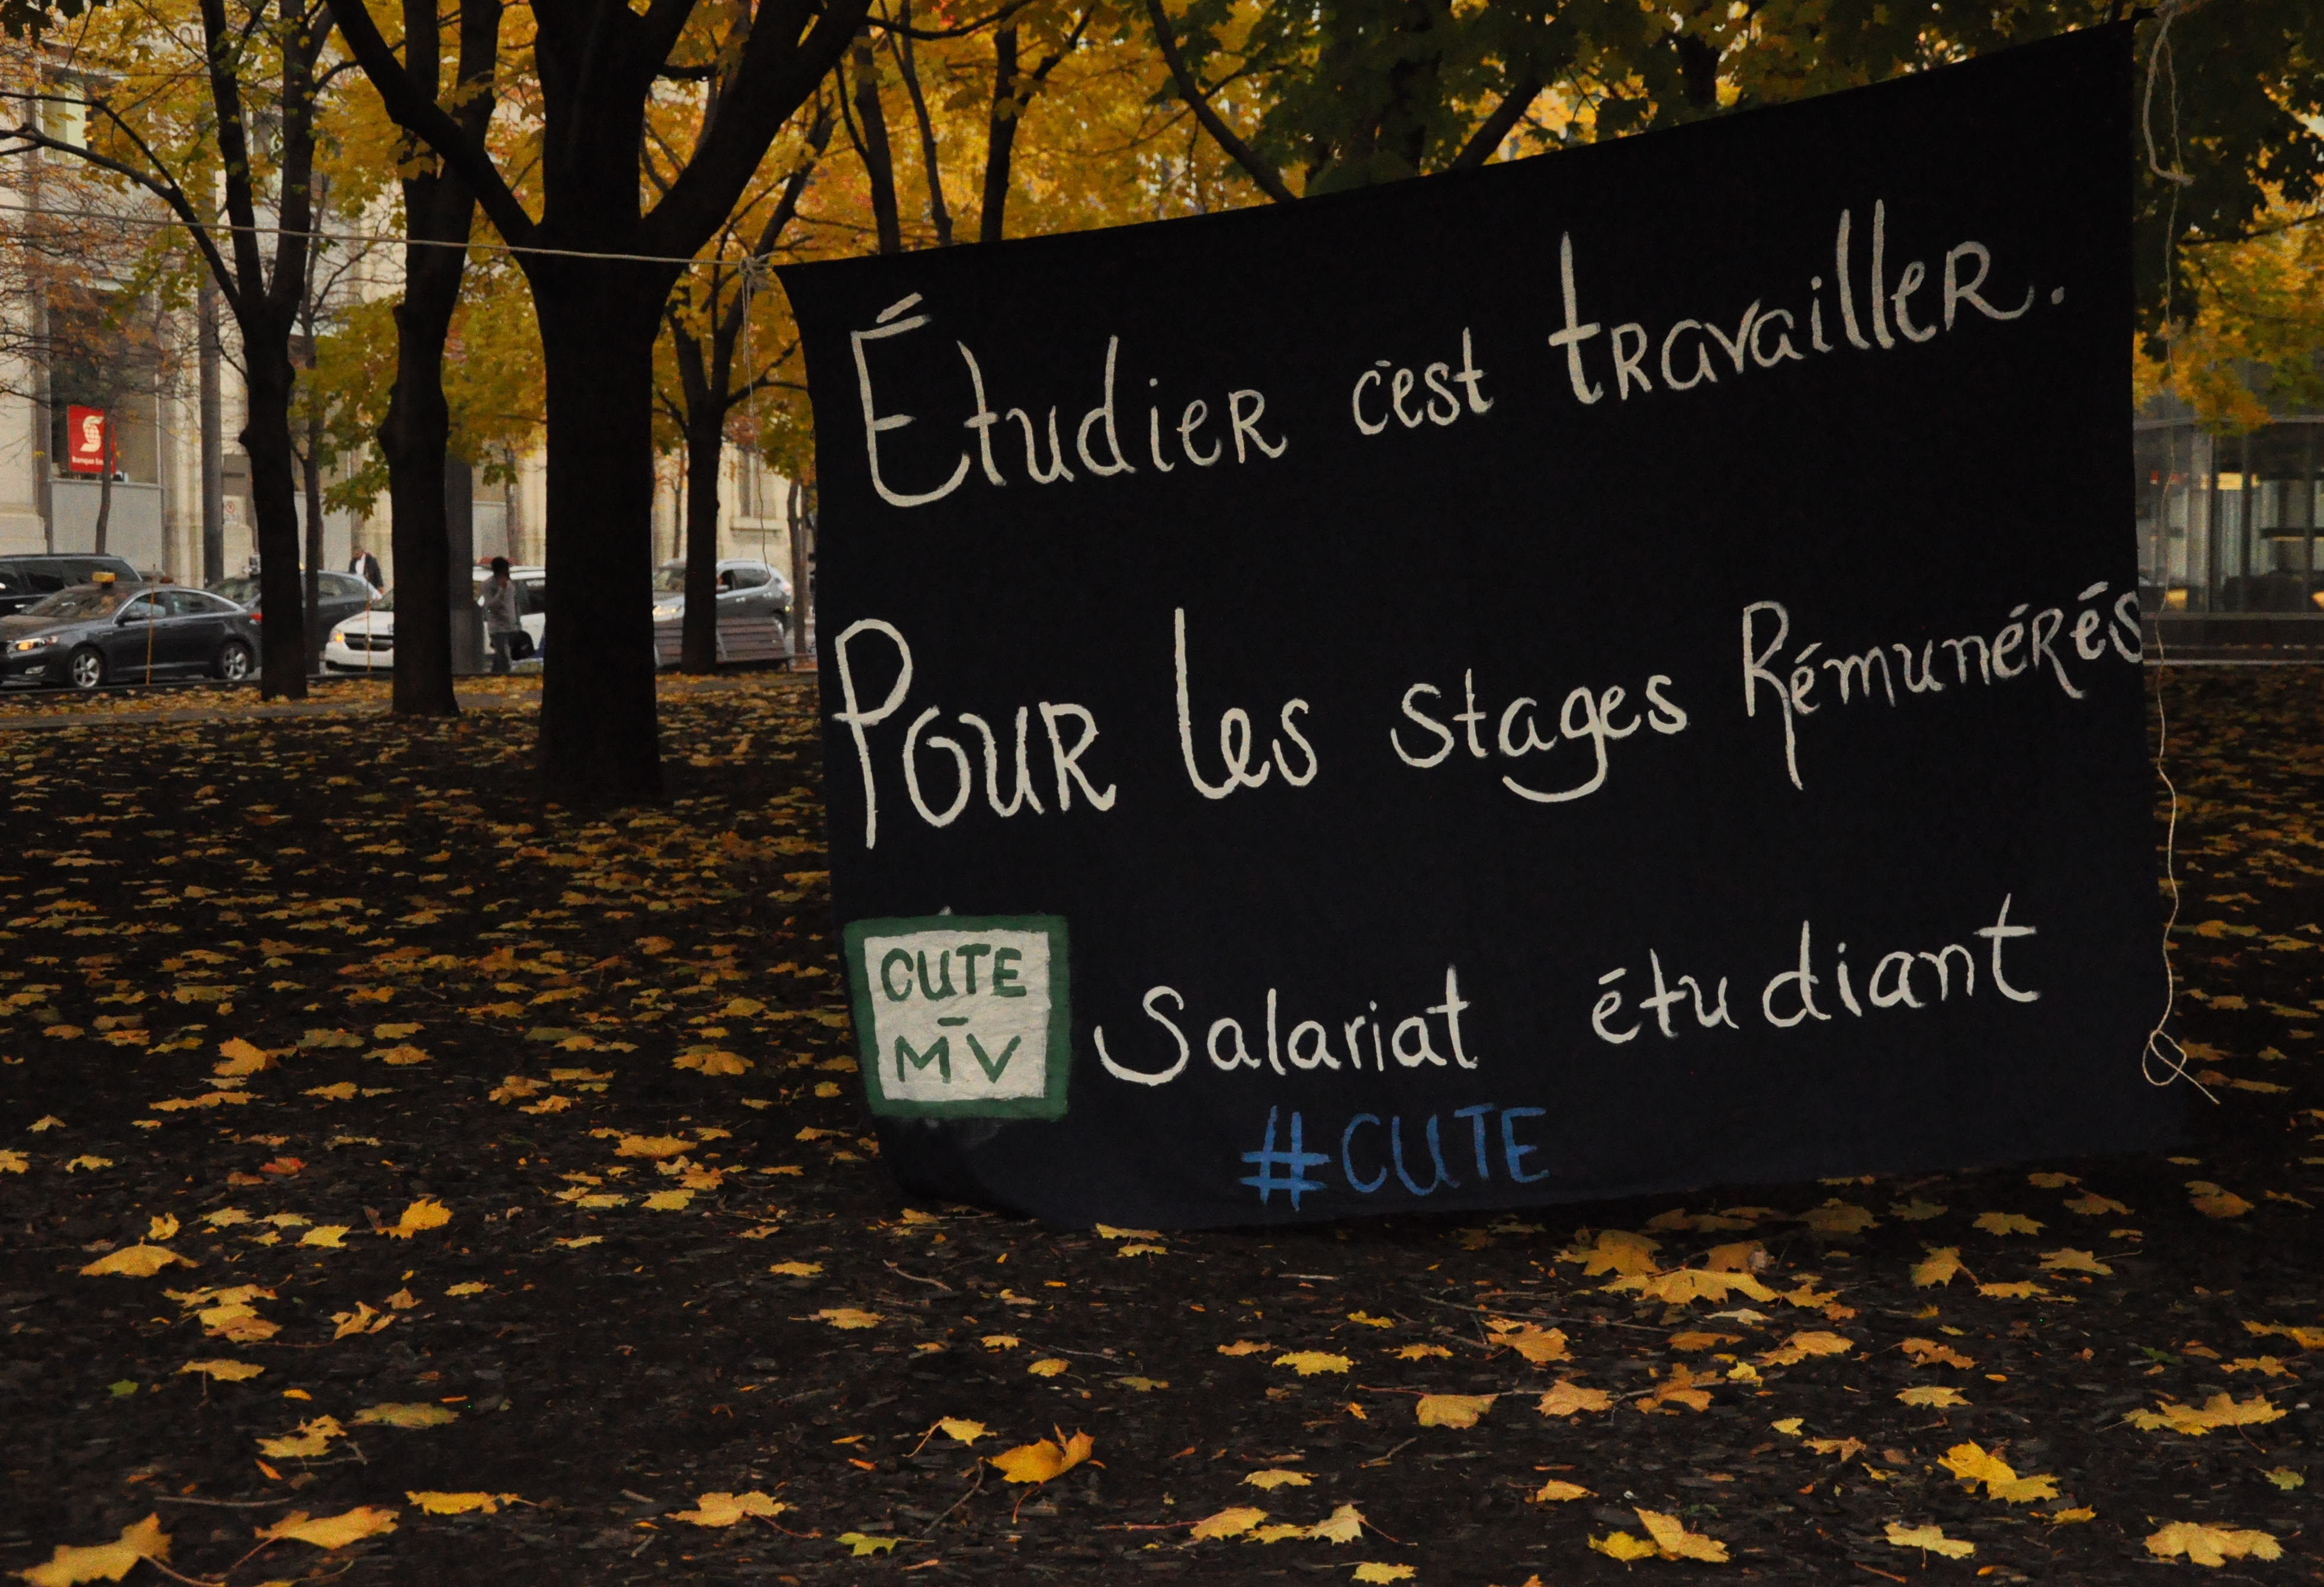 Étudier c'est travailler.
Pour les stages Rémunérés
CUTE
-
MV
Salariat étudiant
#CUTE